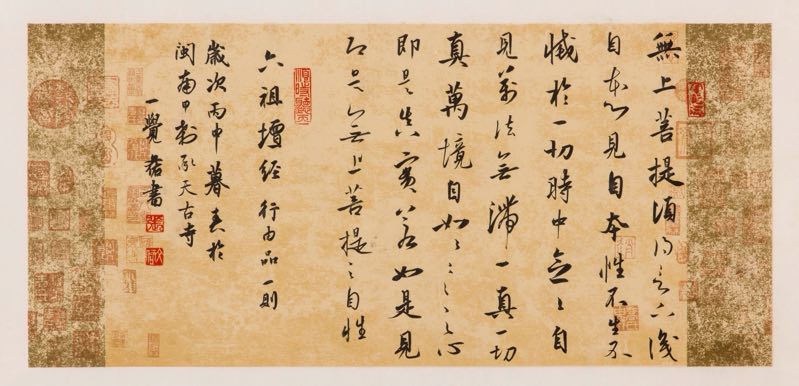 無上菩提須得言下識
自本心見自本性不生不
滅於一切時中念〻自
見萬法無滯一真一切
真萬境自如〻〻〻之心
即是真實若如是見
即是無上菩提之自性
六祖壇經 行由品一則
歲次丙申暮春於
閩南甲刹承天古寺
一覺書